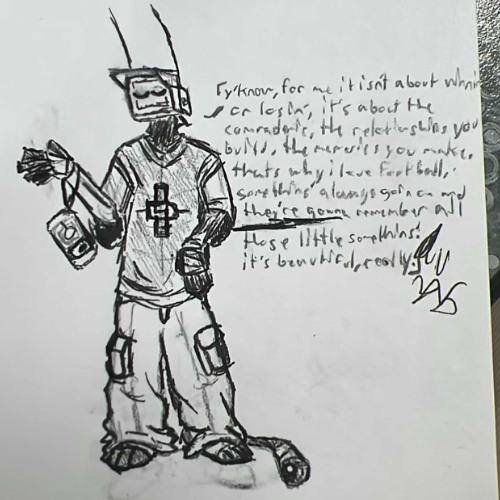 [y'know, for me it isnt about winnin
or losin', it's about the
comraderie, the relationships you
build, the memories you make,
thats why i love football,
somethins' always goin on and
they're gonna remember all
those little somethins'.
it's beautiful, really]